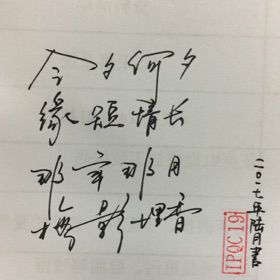 今夕何夕
缘短情长
那年那月
梅影埋香
二〇一七年陆月書
IPQC19